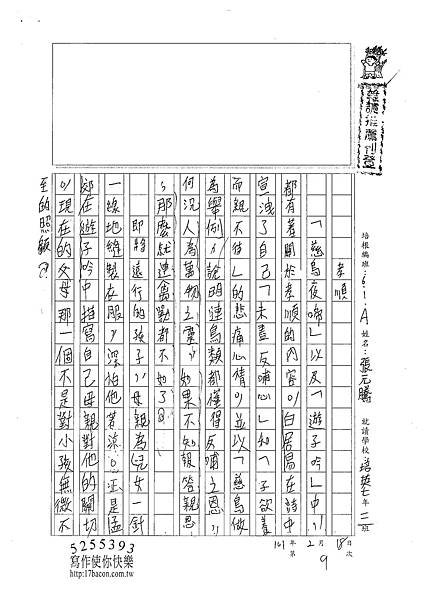 蓓讀推薦刊登
培根編班:611A 姓名:張元騰 就讀學校 培英七年二班
孝順
「慈烏夜啼」以及「遊子吟」中,
都有著關於孝順的內容,白居易在詩中
宣洩了自己「未盡反哺心」和「子欲養
而親不待」的悲痛心情,並以「慈烏做
為舉例,說明連鳥類都懂得反哺之恩,
何況人為萬物之靈,如果不知報答親恩
,那麼就連禽獸都不如了。
即將遠行的孩子,母親為兒女一針
一線地縫製在服,深怕他著涼。正是孟
郊在遊子吟中描寫自己母親對他的關切
,現在的父母那一個不是對小孩無微不
至的照顧?
101年2月18日
第9次
5255393
寫作使你快樂
http://17bacon.com.tw